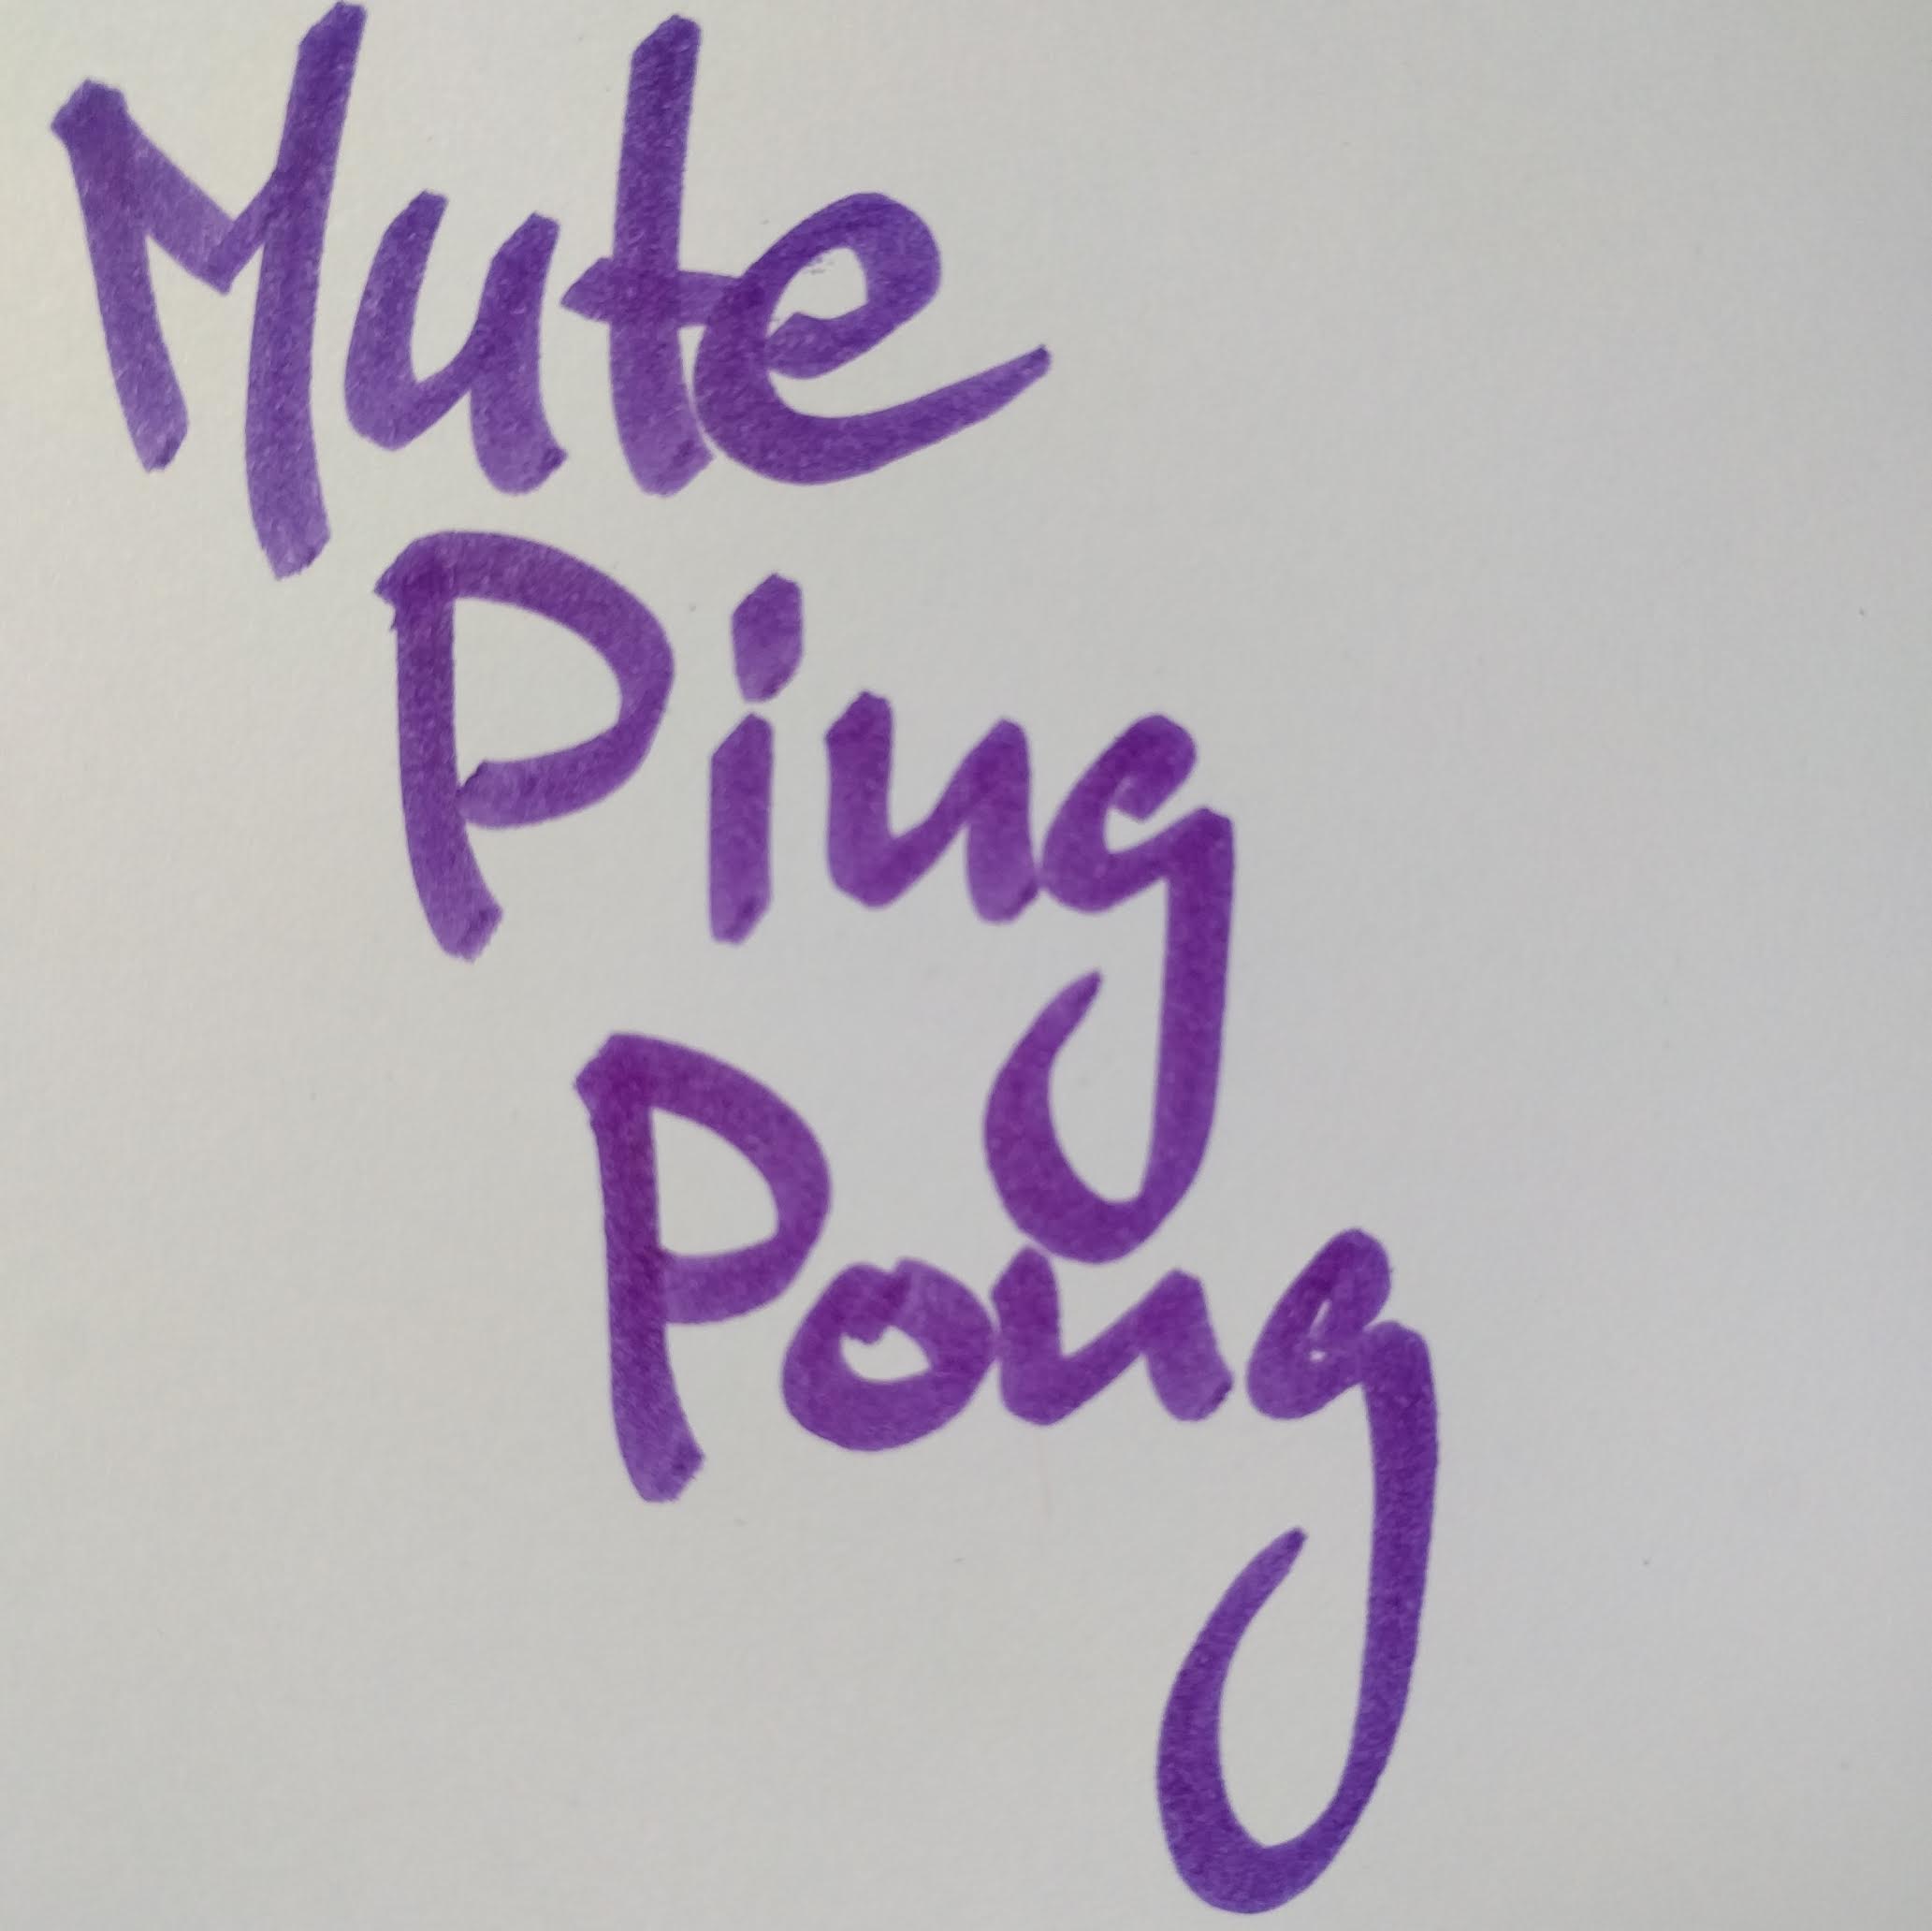 Mute
Ping
Pong